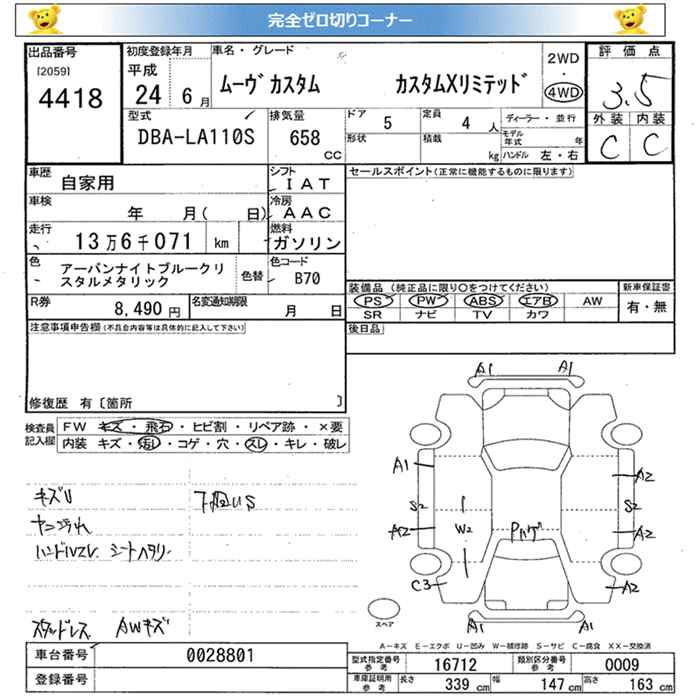 完全ゼロ切りコーナー
出品番号
[2059]
4418
初度登録年月
平成
24 6月
車名・グレード
ムーヴ カスタム カスタムXリミテッド
2WD
・
4WD
評価点
3.5
外装 内装
C C
型式
DBA-LA110S
排気量
658
CC
ドア 5
定員 4 人
形状
積載 kg
ディーラー・並行
モデル年式 年
ハンドル 左・右
車歴
自家用
シフト
IAT
セールスポイント(正常に機能するものに限ります)
車検
年 月( 日)
冷房
AAC
走行
13万6千071 km
燃料
ガソリン
色
アーバンナイトブルークリスタルメタリック
色替
色コード
B70
R券
8,490円
名変通知期限
月 日
装備品(純正品に限り○をつけてください)
PS PW ABS エアB AW
SR ナビ TV カワ
新車保証書
有・無
後日品
注意事項申告欄(不具合内容等は具体的に記入して下さい)
修復歴 有〔箇所 〕
検査員記入欄
FW キズ・飛石・ヒビ割・リペア跡・×要
内装 キズ・汚レ・コゲ・穴・スレ・キレ・破レ
キズU
ハンドルスレ シートヘタリ
スタッドレス AWキズ
A1 A1
A1 A2
S2 S2
A2 W2 A2
C3 A2
A1 A1
スペア
A-キズ E-エクボ U-凹み W-補修跡 S-サビ C-腐食 XX-交換済
車台番号 0028801
登録番号
型式指定番号 参考 16712
類別区分番号 参考 0009
車庫証明用 参考
長さ 339 cm
幅 147 cm
高さ 163 cm